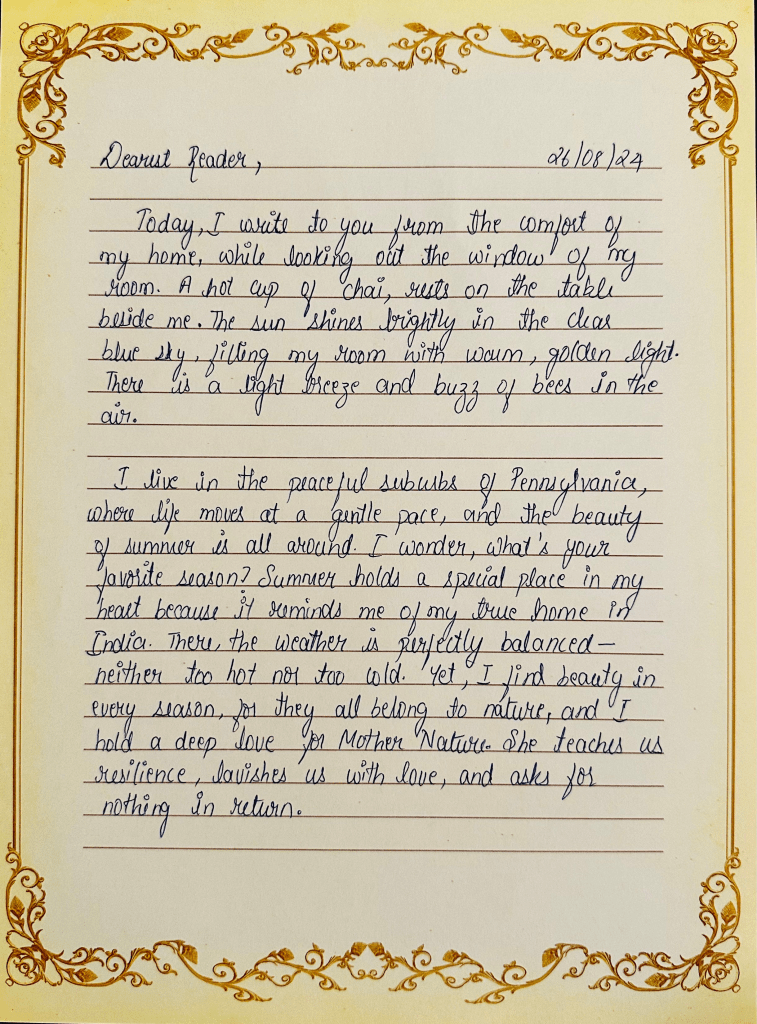 Dearest Reader, 26/08/24
Today, I write to you from the comfort of
my home, while looking out the window of my
room. A hot cup of chai, rests on the table
beside me. The sun shines brightly in the clear
blue sky, filling my room with warm, golden light.
There is a light breeze and buzz of bees in the
air.
I live in the peaceful suburbs of Pennsylvania,
where life moves at a gentle pace, and the beauty
of summer is all around. I wonder, what's your
favorite season? Summer holds a special place in my
heart because it reminds me of my true home in
India. There, the weather is perfectly balanced—
neither too hot nor too cold. Yet, I find beauty in
every season, for they all belong to nature, and I
hold a deep love for Mother Nature. She teaches us
resilience, lavishes us with love, and asks for
nothing in return.